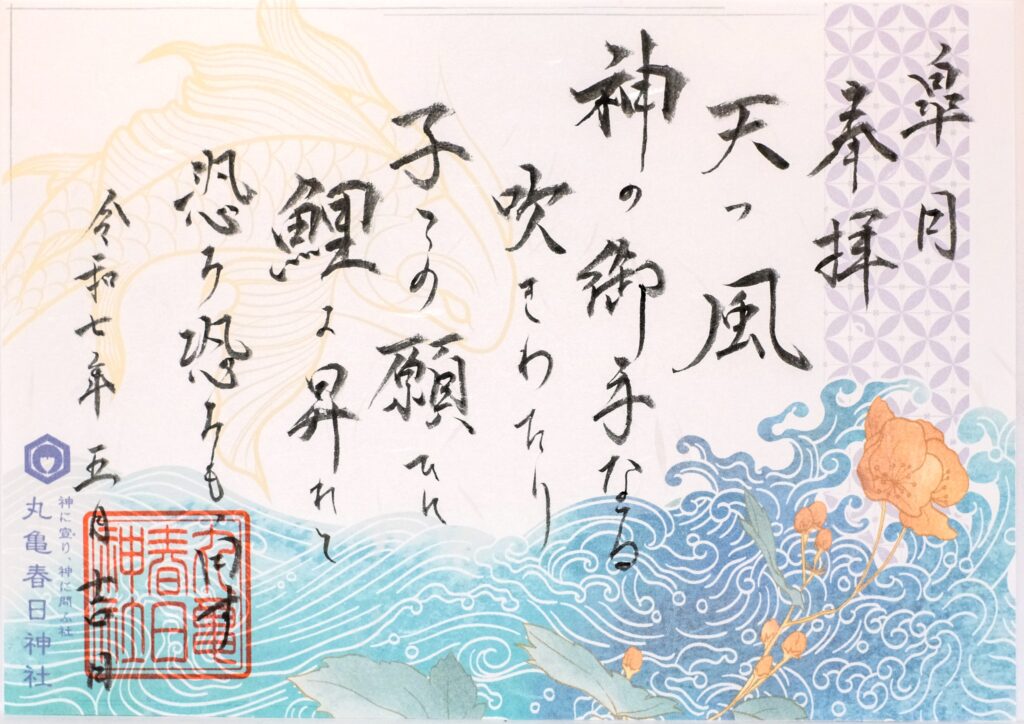 皐月
奉拝
天つ風
神の御手なる
吹きわたり
子らの願ひ
鯉よ昇れと
恐み恐みも
令和七年 五月 吉日
神に宣り、神に問ふ社
丸亀春日神社
丸亀
春日
神社